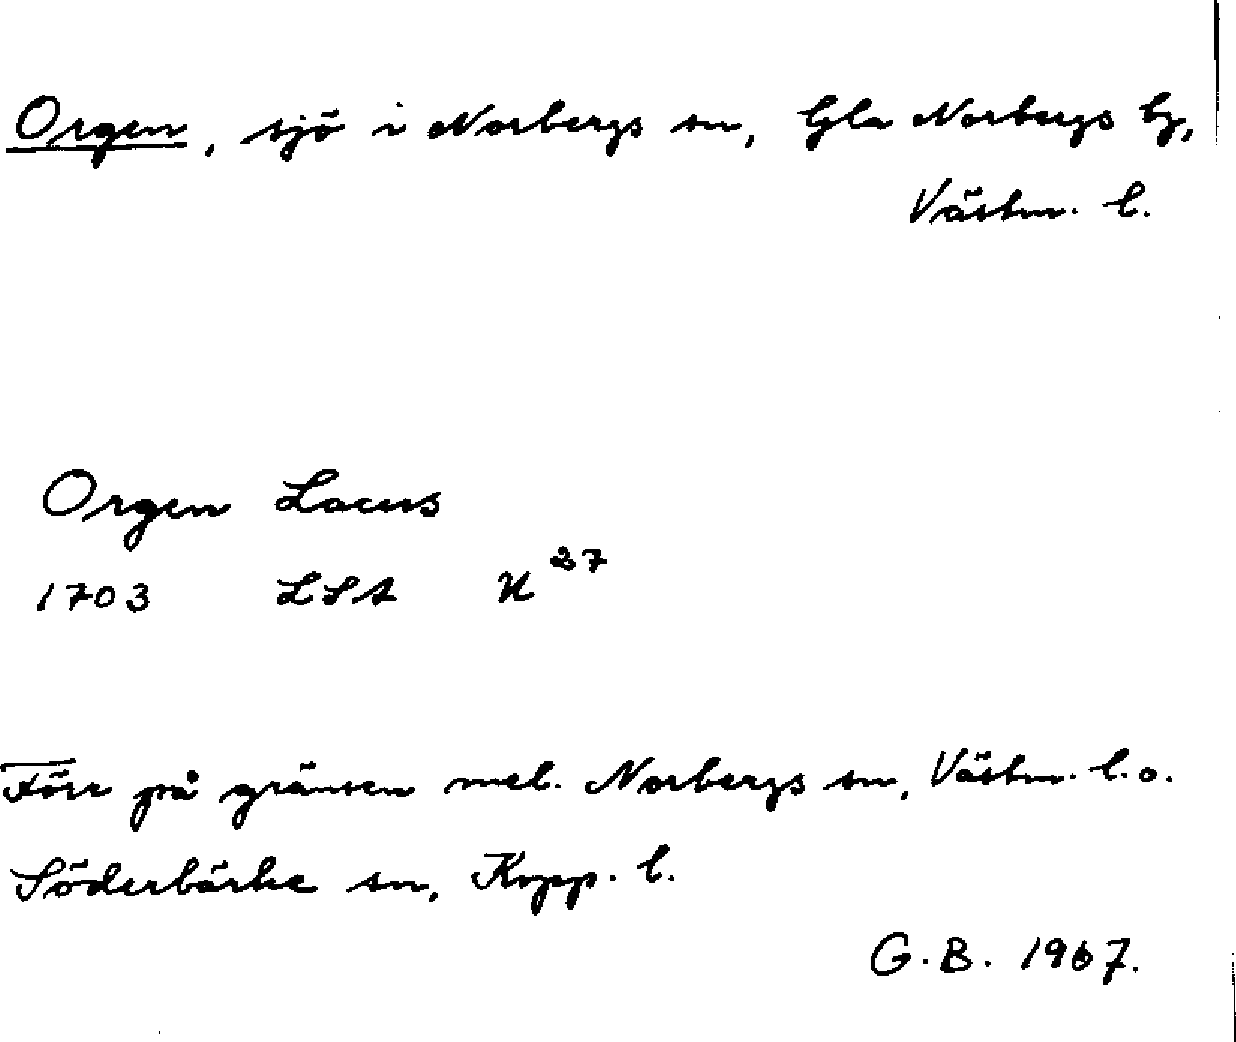 Orgen, sjö i Norbergs sn, Gla Norbergs bg,
Västm. l.
Orgen Lacus
1703 LSA U 27
Förr på gränsen mel. Norbergs sn, Västm. l. o.
Söderbärke sn, Kopp. l.
G.B. 1967.